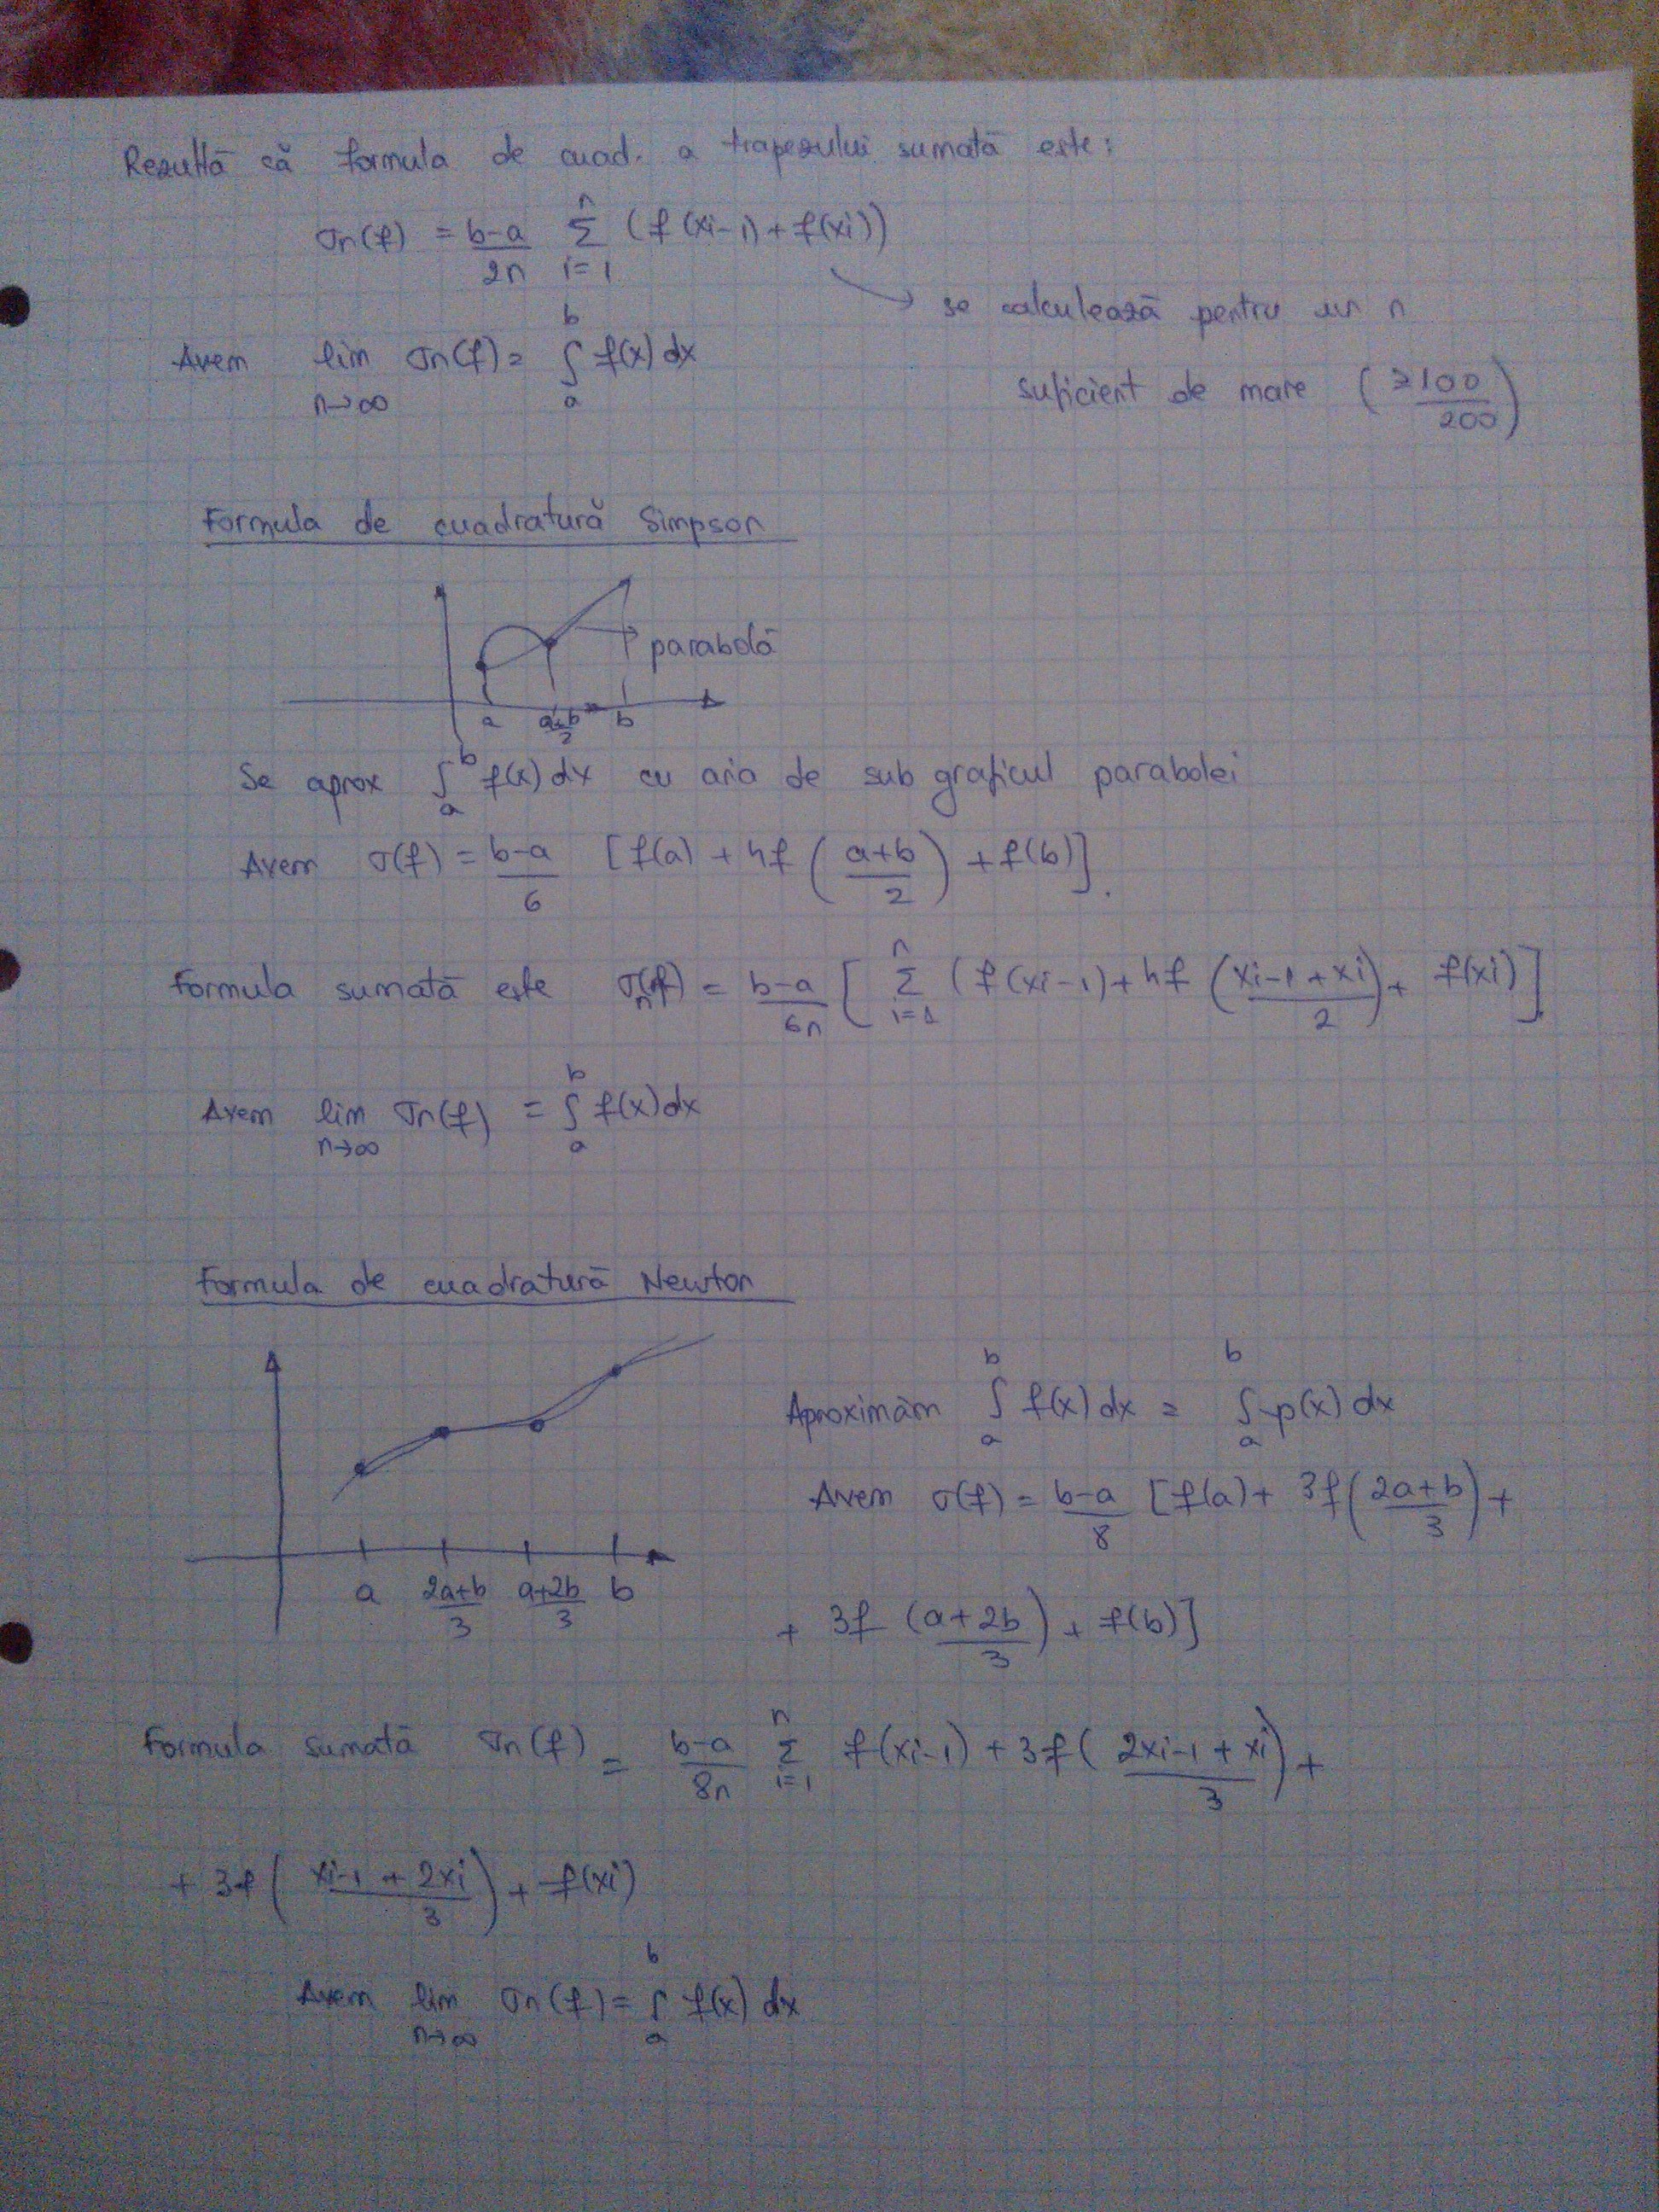 Rezultă că formula de cuad. a trapezului sumată este:
σn(f) = b-a/2n Σ i=1 n (f(xi-1) + f(xi))
→ se calculează pentru un n
suficient de mare (≥100/200)
Avem lim n→∞ σn(f) = ∫ a b f(x) dx
Formula de cuadratură Simpson
parabolă
a a+b/2 b
Se aprox ∫ a b f(x) dx cu aria de sub graficul parabolei
Avem σ(f) = b-a/6 [f(a) + 4f(a+b/2) + f(b)].
Formula sumată este σn(f) = b-a/6n [Σ i=1 n (f(xi-1) + 4f(xi-1 + xi/2) + f(xi)]
Avem lim n→∞ σn(f) = ∫ a b f(x) dx
Formula de cuadratură Newton
a 2a+b/3 a+2b/3 b
Aproximăm ∫ a b f(x) dx = ∫ a b p(x) dx
Avem σ(f) = b-a/8 [f(a) + 3f(2a+b/3) +
+ 3f (a+2b/3) + f(b)]
Formula sumată σn(f) = b-a/8n Σ i=1 n f(xi-1) + 3f(2xi-1 + xi/3) +
+ 3f(xi-1 + 2xi/3) + f(xi)
Avem lim n→∞ σn(f) = ∫ a b f(x) dx